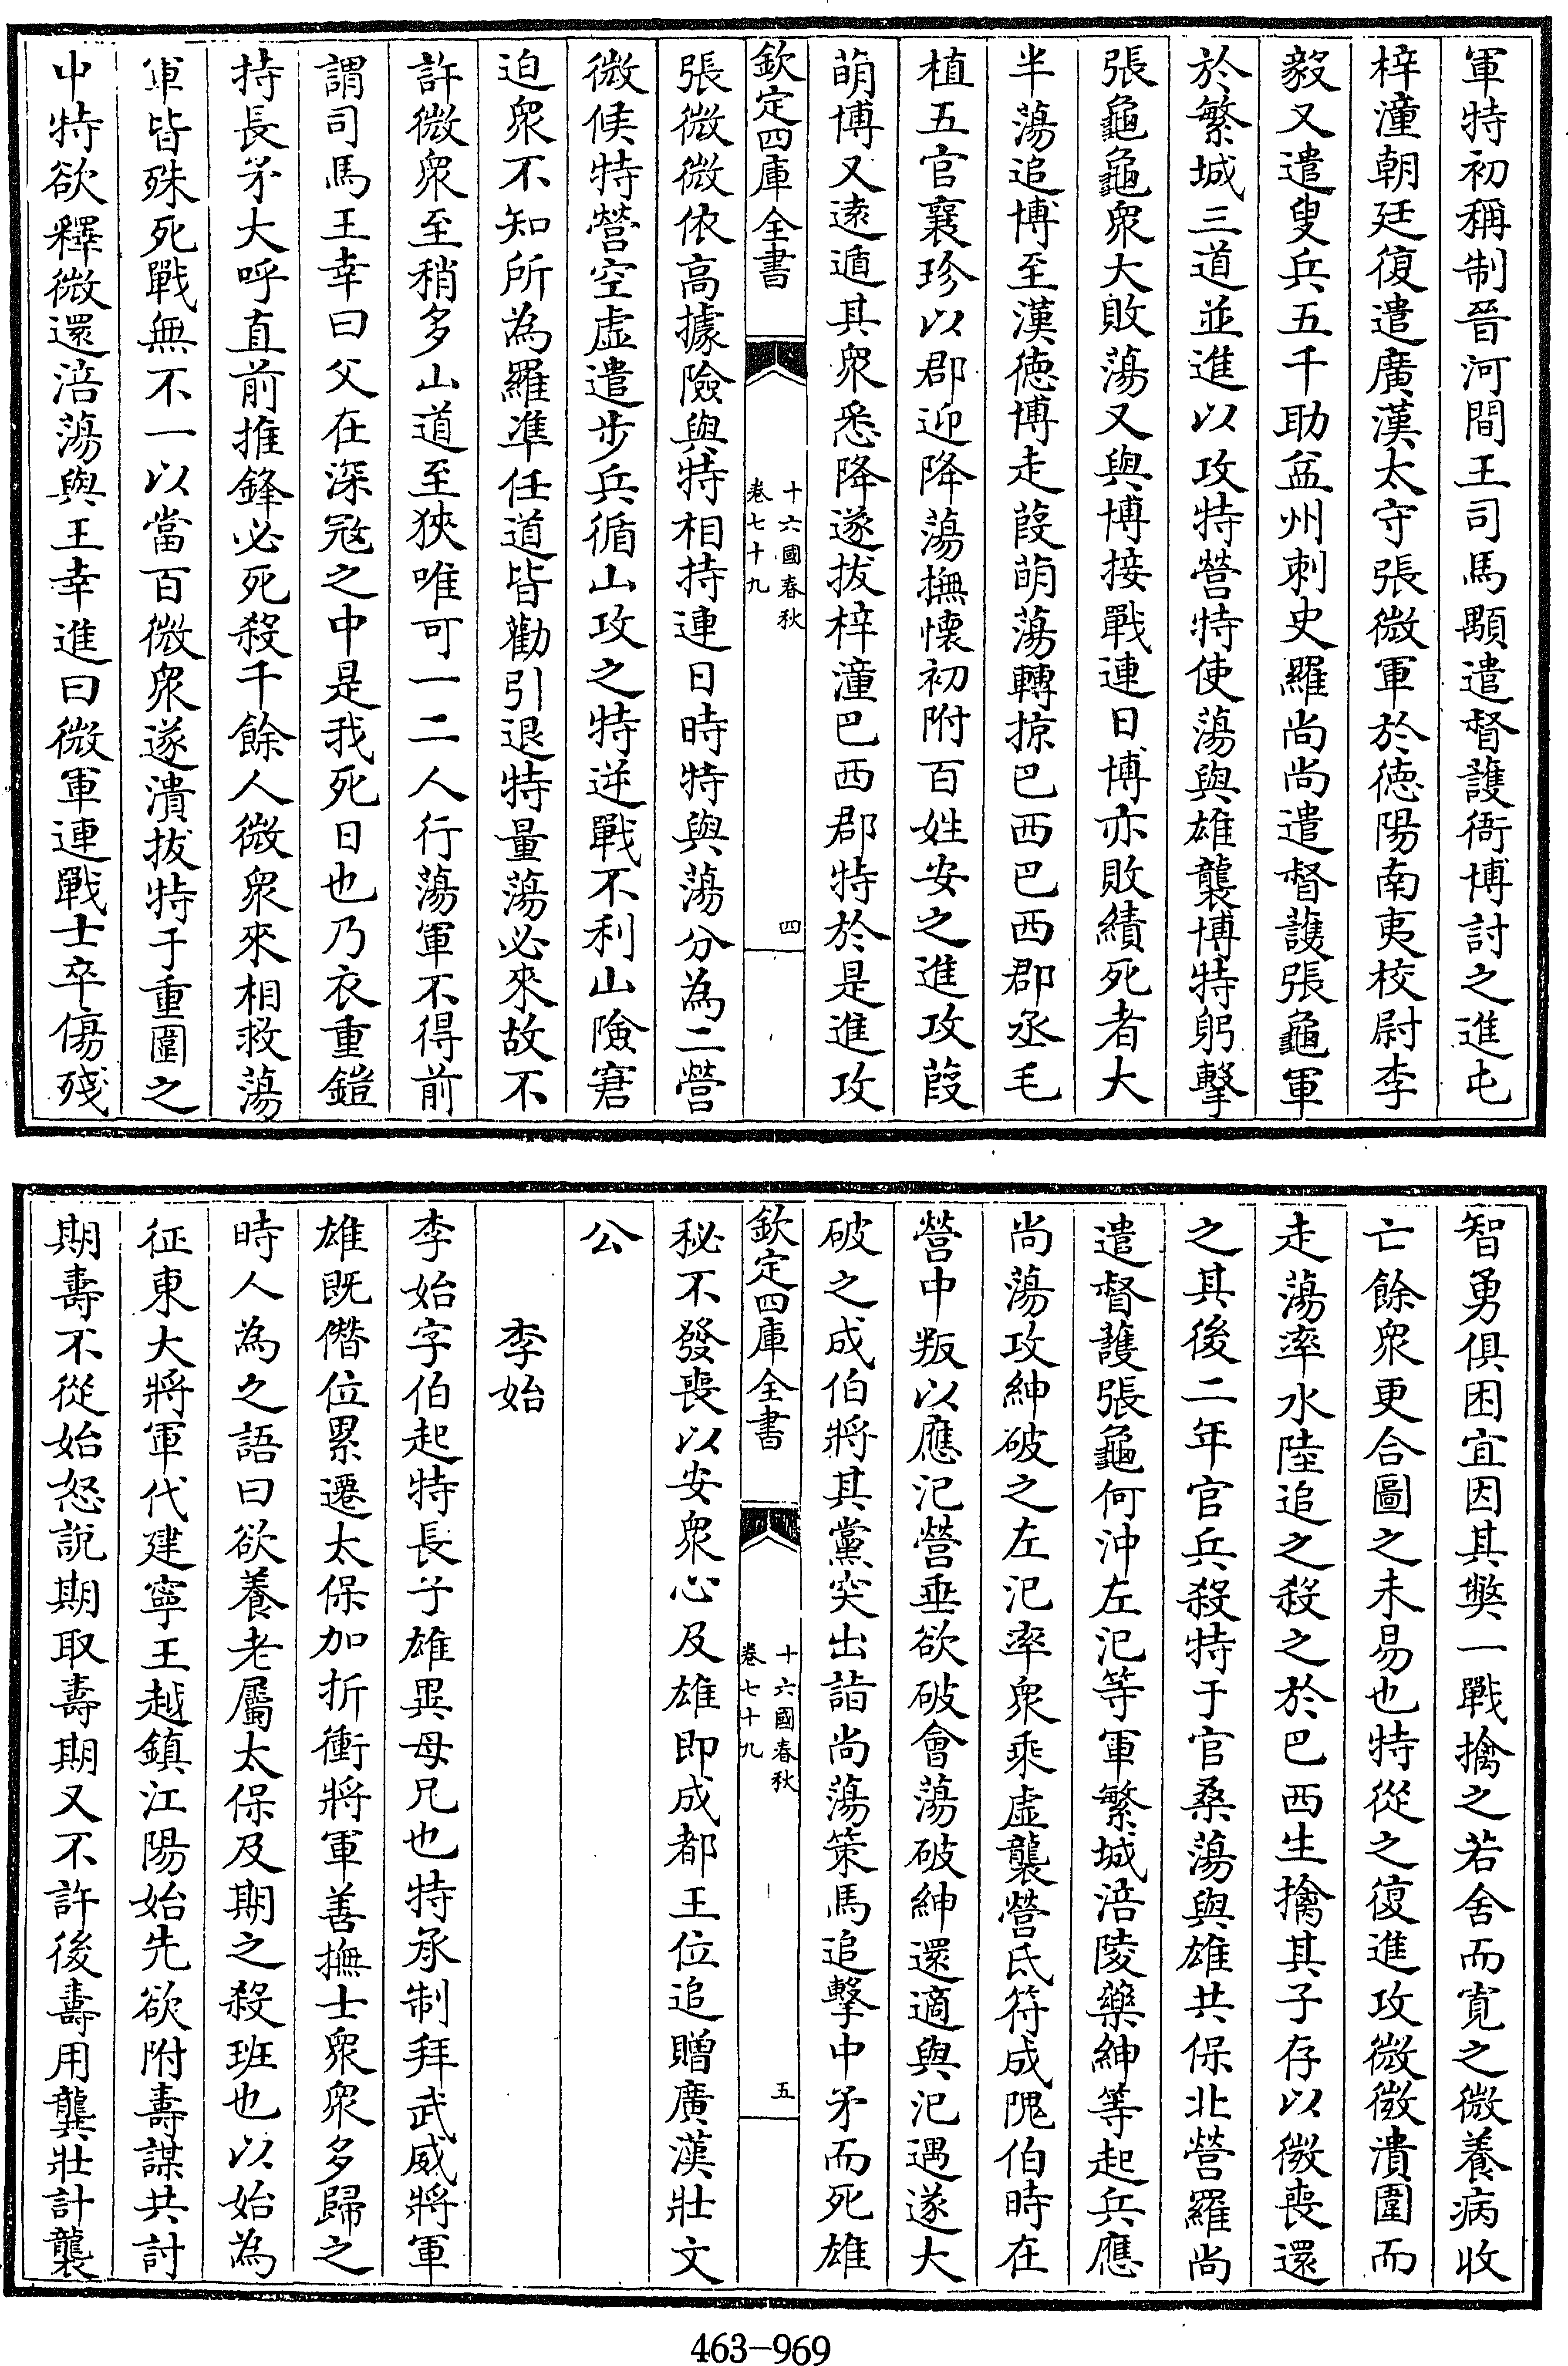 軍特初稱制晉河間王司馬顒遣督護衙博討之進屯
梓潼朝廷復遣廣漢太守張微軍於德陽南夷校尉李
毅又遣叟兵五千助益州刺史羅尚尚遣督護張龜軍
於繁城三道並進以攻特營特使蕩與雄襲博特躬擊
張龜龜衆大敗蕩又與博接戰連日博亦敗績死者大
半蕩追博至漢德博走葭萌蕩轉掠巴西巴西郡丞毛
植五官襄珍以郡迎降蕩撫懷初附百姓安之進攻葭
萌博又遠遁其衆悉降遂拔梓潼巴西郡特於是進攻
欽定四庫全書
十六國春秋
卷七十九
四
張微微依高據險與特相持連日時特與蕩分為二營
微候特營空虛遣步兵循山攻之特逆戰不利山險窘
迫衆不知所為羅準任道皆勸引退特量蕩必來故不
許微衆至稍多山道至狹唯可一二人行蕩軍不得前
謂司馬王幸曰父在深寇之中是我死日也乃衣重鎧
持長矛大呼直前推鋒必死殺千餘人微衆來相救蕩
軍皆殊死戰無不一以當百微衆遂潰拔特于重圍之
中特欲釋微還涪蕩與王幸進曰微軍連戰士卒傷殘
智勇俱困宜因其弊一戰擒之若舍而寛之微養病收
亡餘衆更合圖之未易也特從之復進攻微微潰圍而
走蕩率水陸追之殺之於巴西生擒其子存以微喪還
之其後二年官兵殺特于官桑蕩與雄共保北營羅尚
遣督護張龜何沖左氾等軍繁城涪陵藥紳等起兵應
尚蕩攻紳破之左氾率衆乘虛襲營氐符成隗伯時在
營中叛以應氾營垂欲破會蕩破紳還適與氾遇遂大
破之成伯將其黨突出詣尚蕩策馬追擊中矛而死雄
欽定四庫全書
十六國春秋
卷七十九
五
秘不發喪以安衆心及雄即成都王位追贈廣漢壯文
公
李始
李始字伯起特長子雄異母兄也特承制拜武威將軍
雄既僭位累遷太保加折衝將軍善撫士衆衆多歸之
時人為之語曰欲養老屬太保及期之殺班也以始為
征東大將軍代建寧王越鎮江陽始先欲附壽謀共討
期壽不從始怒説期取壽期又不許後壽用龔壯計襲
463-969